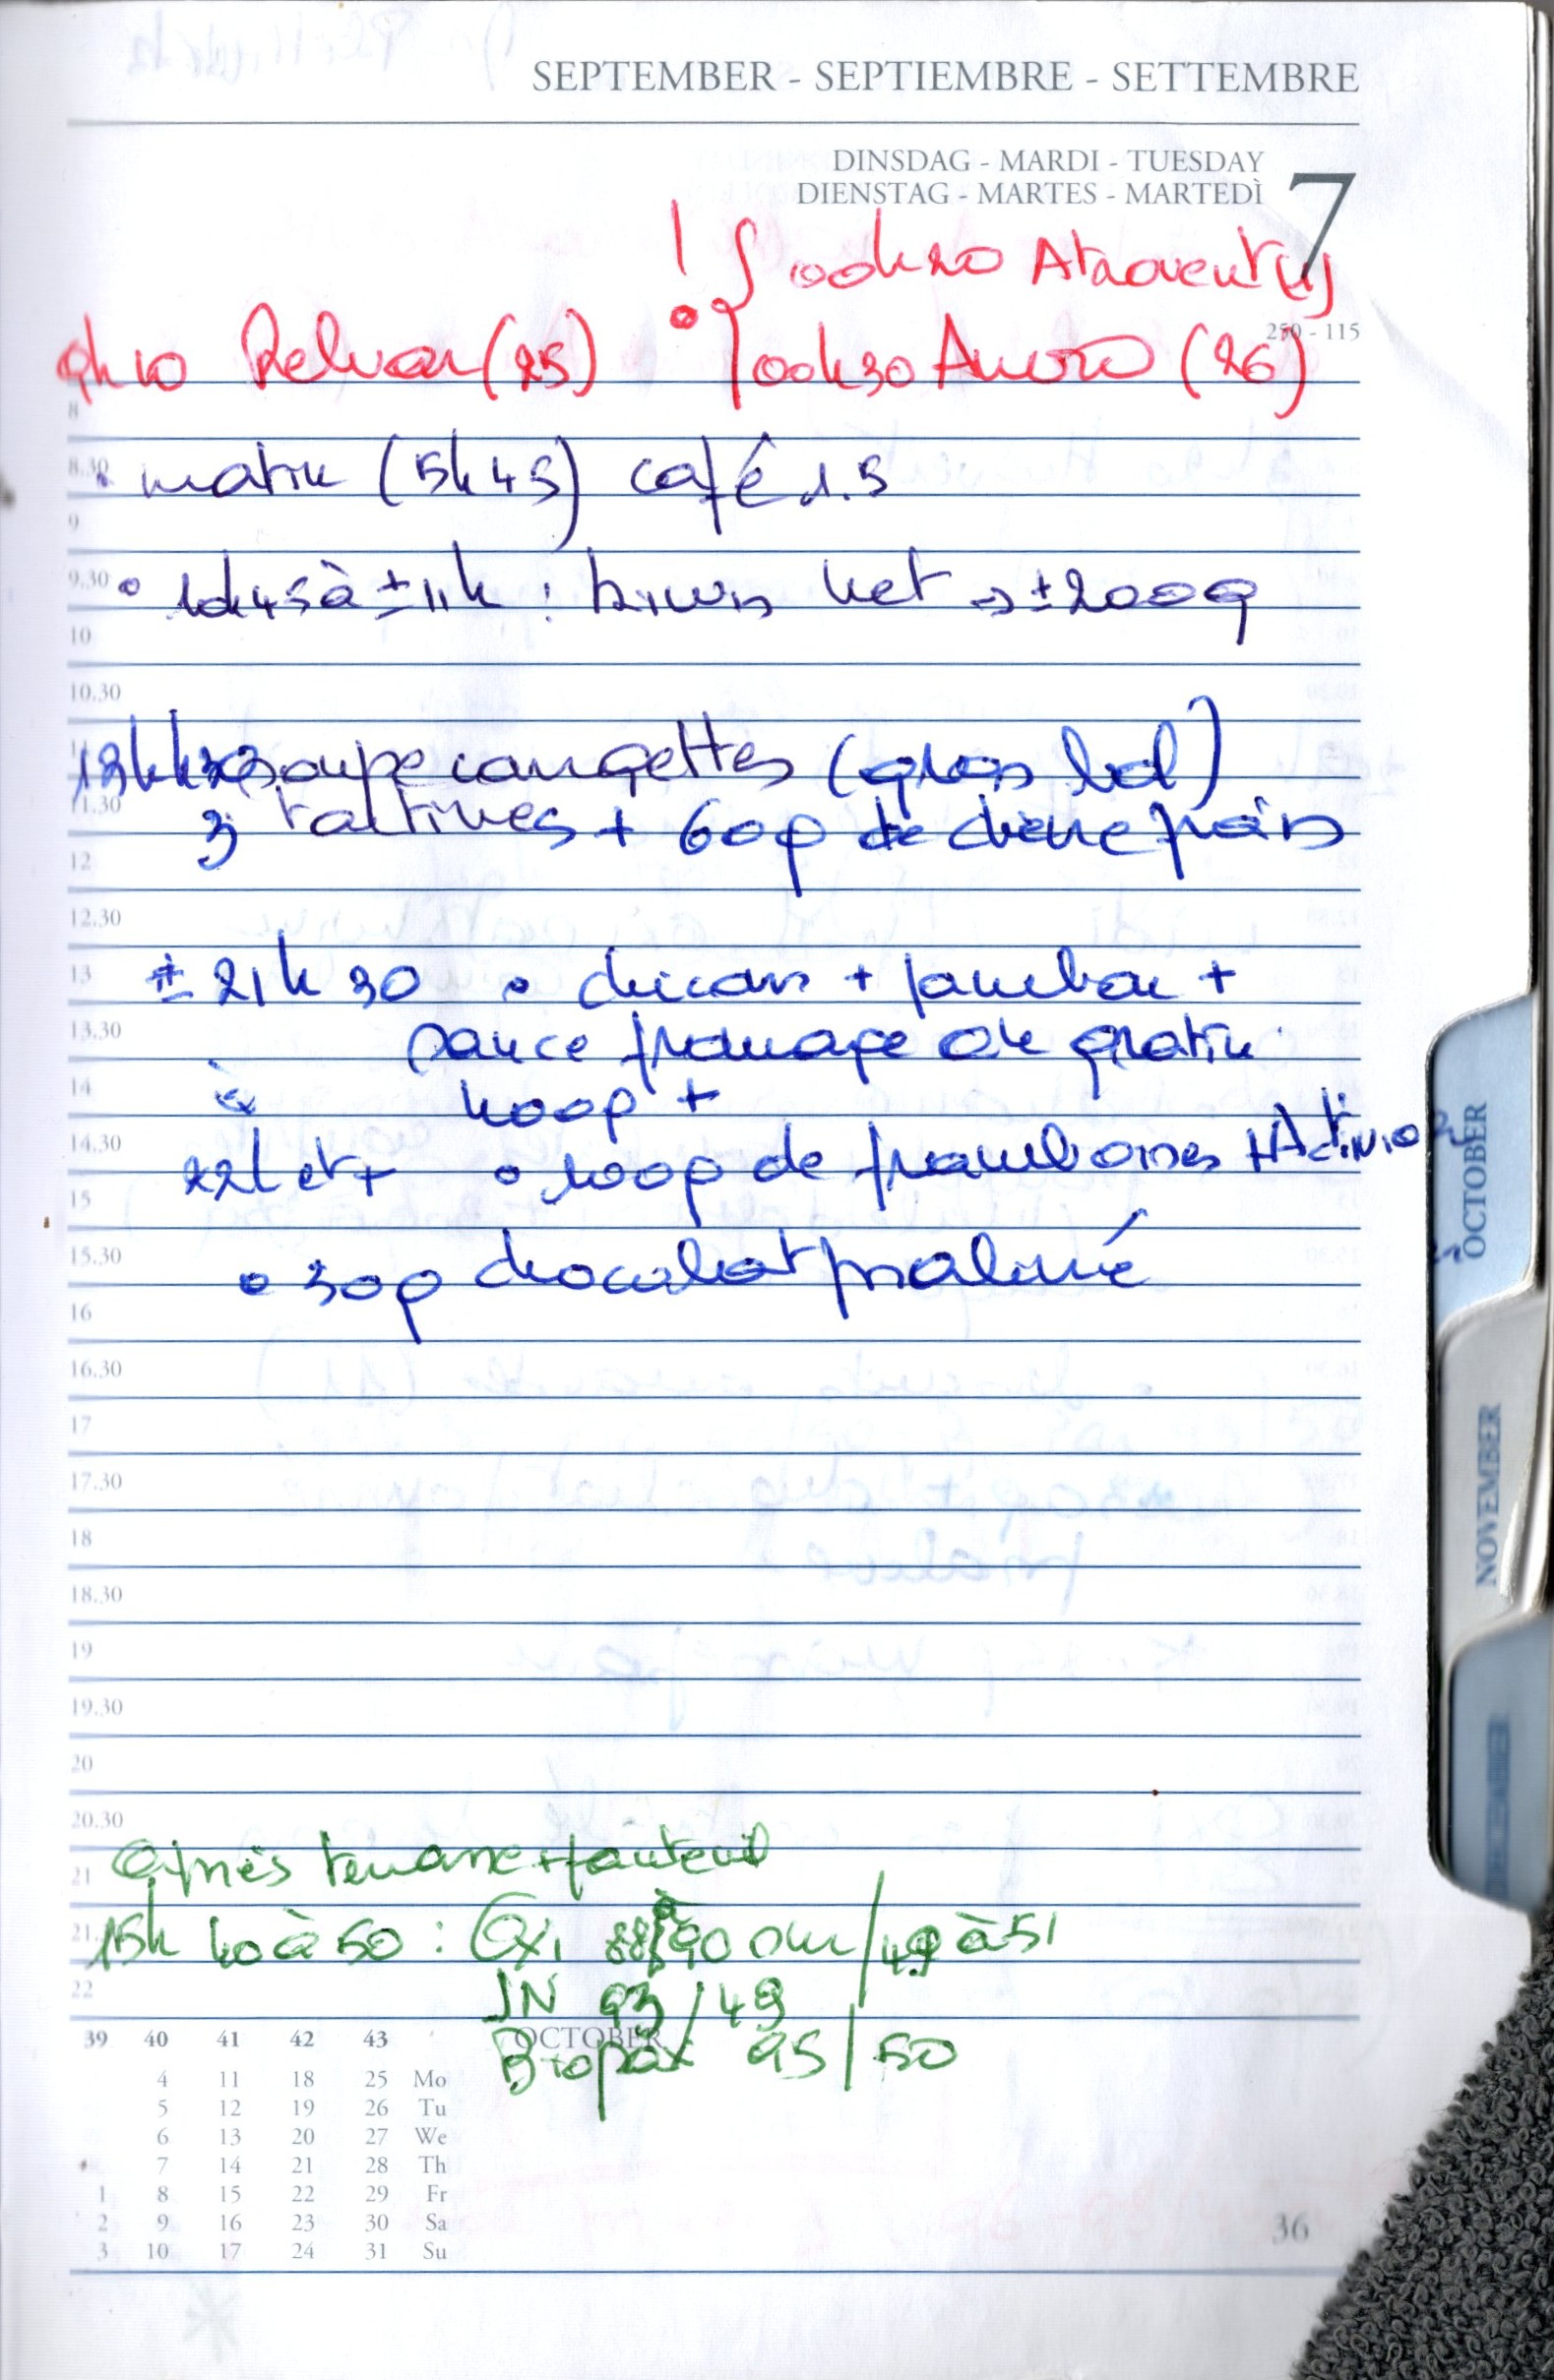 SEPTEMBER - SEPTIEMBRE - SETTEMBRE
DINSDAG - MARDI - TUESDAY
DIENSTAG - MARTES - MARTEDÌ
7
! 00h20 Atrovent (1)
250 - 115
9h10 Relvar (25) 00h30 Anoro (26)
8
8.30 matin (5h45) café 1.5
9
9.30 10h45 à ± 11h : kiwis net → ± 200g
10
10.30
soupe courgettes (gros bol)
11.30
3 tartines + 60g de chèvre frais
12
12.30
13 ± 21h30 chicon + jambon +
13.30 sauce fromage de gratin
14 à 400g +
14.30
22h et + 100g de framboises + Actimel
15
15.30 30g chocolat praliné
16
16.30
17
17.30
18
18.30
19
19.30
20
20.30
Après terrasse + fauteuil
21
15h 40 à 50 : Oxi 88 à 90 / 49 à 51
22 JN 93 / 49
39 40 41 42 43 OCTOBER
Biopax 95 / 50
4 11 18 25 Mo
5 12 19 26 Tu
6 13 20 27 We
7 14 21 28 Th
1 8 15 22 29 Fr
2 9 16 23 30 Sa
3 10 17 24 31 Su
36
OCTOBER
NOVEMBER
DECEMBER